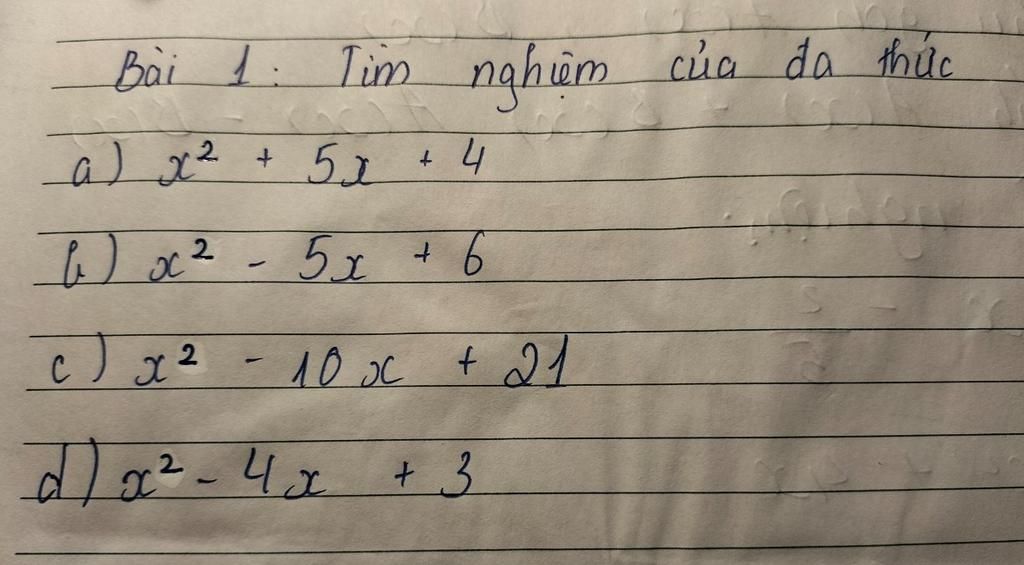 Bài 1 : Tìm nghiệm của đa thức
a) x² + 5x + 4
b) x² - 5x + 6
c) x² - 10x + 21
d) x² - 4x + 3